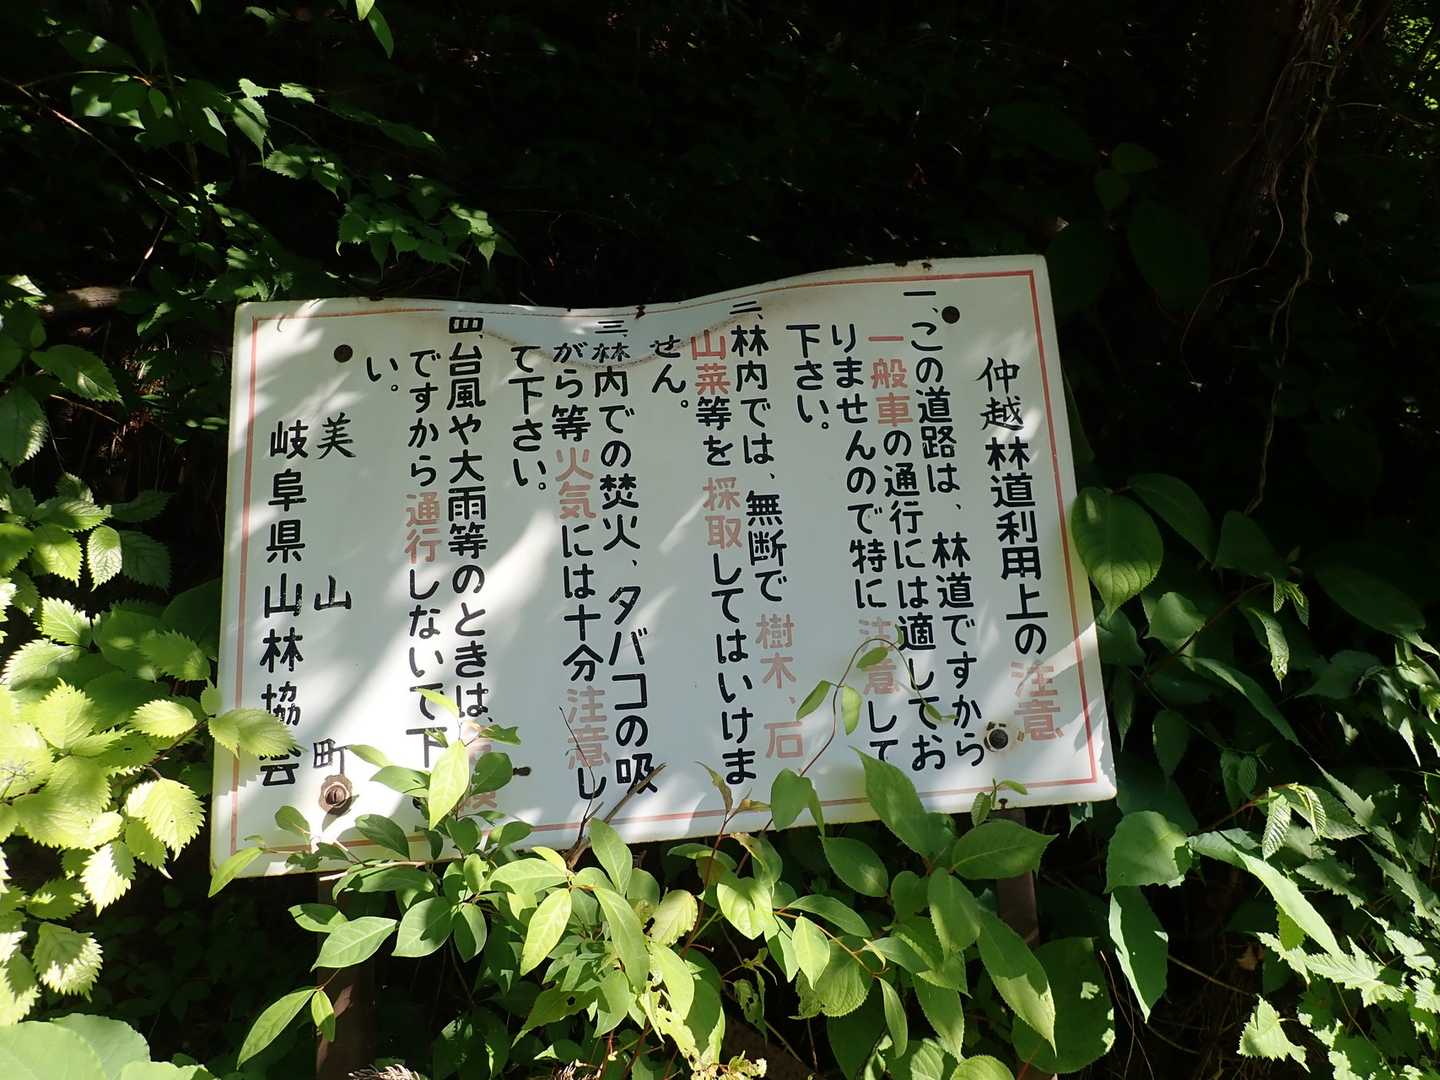 仲越林道利用上の注意
一、この道路は、林道ですから
一般車の通行には適してお
りませんので特に注意して
下さい。
二、林内では、無断で樹木、石
山菜等を採取してはいけま
せん。
三、林内での焚火、タバコの吸
がら等火気には十分注意し
て下さい。
四、台風や大雨等のときは、
ですから通行しないで下
い。
美山町
岐阜県山林協会